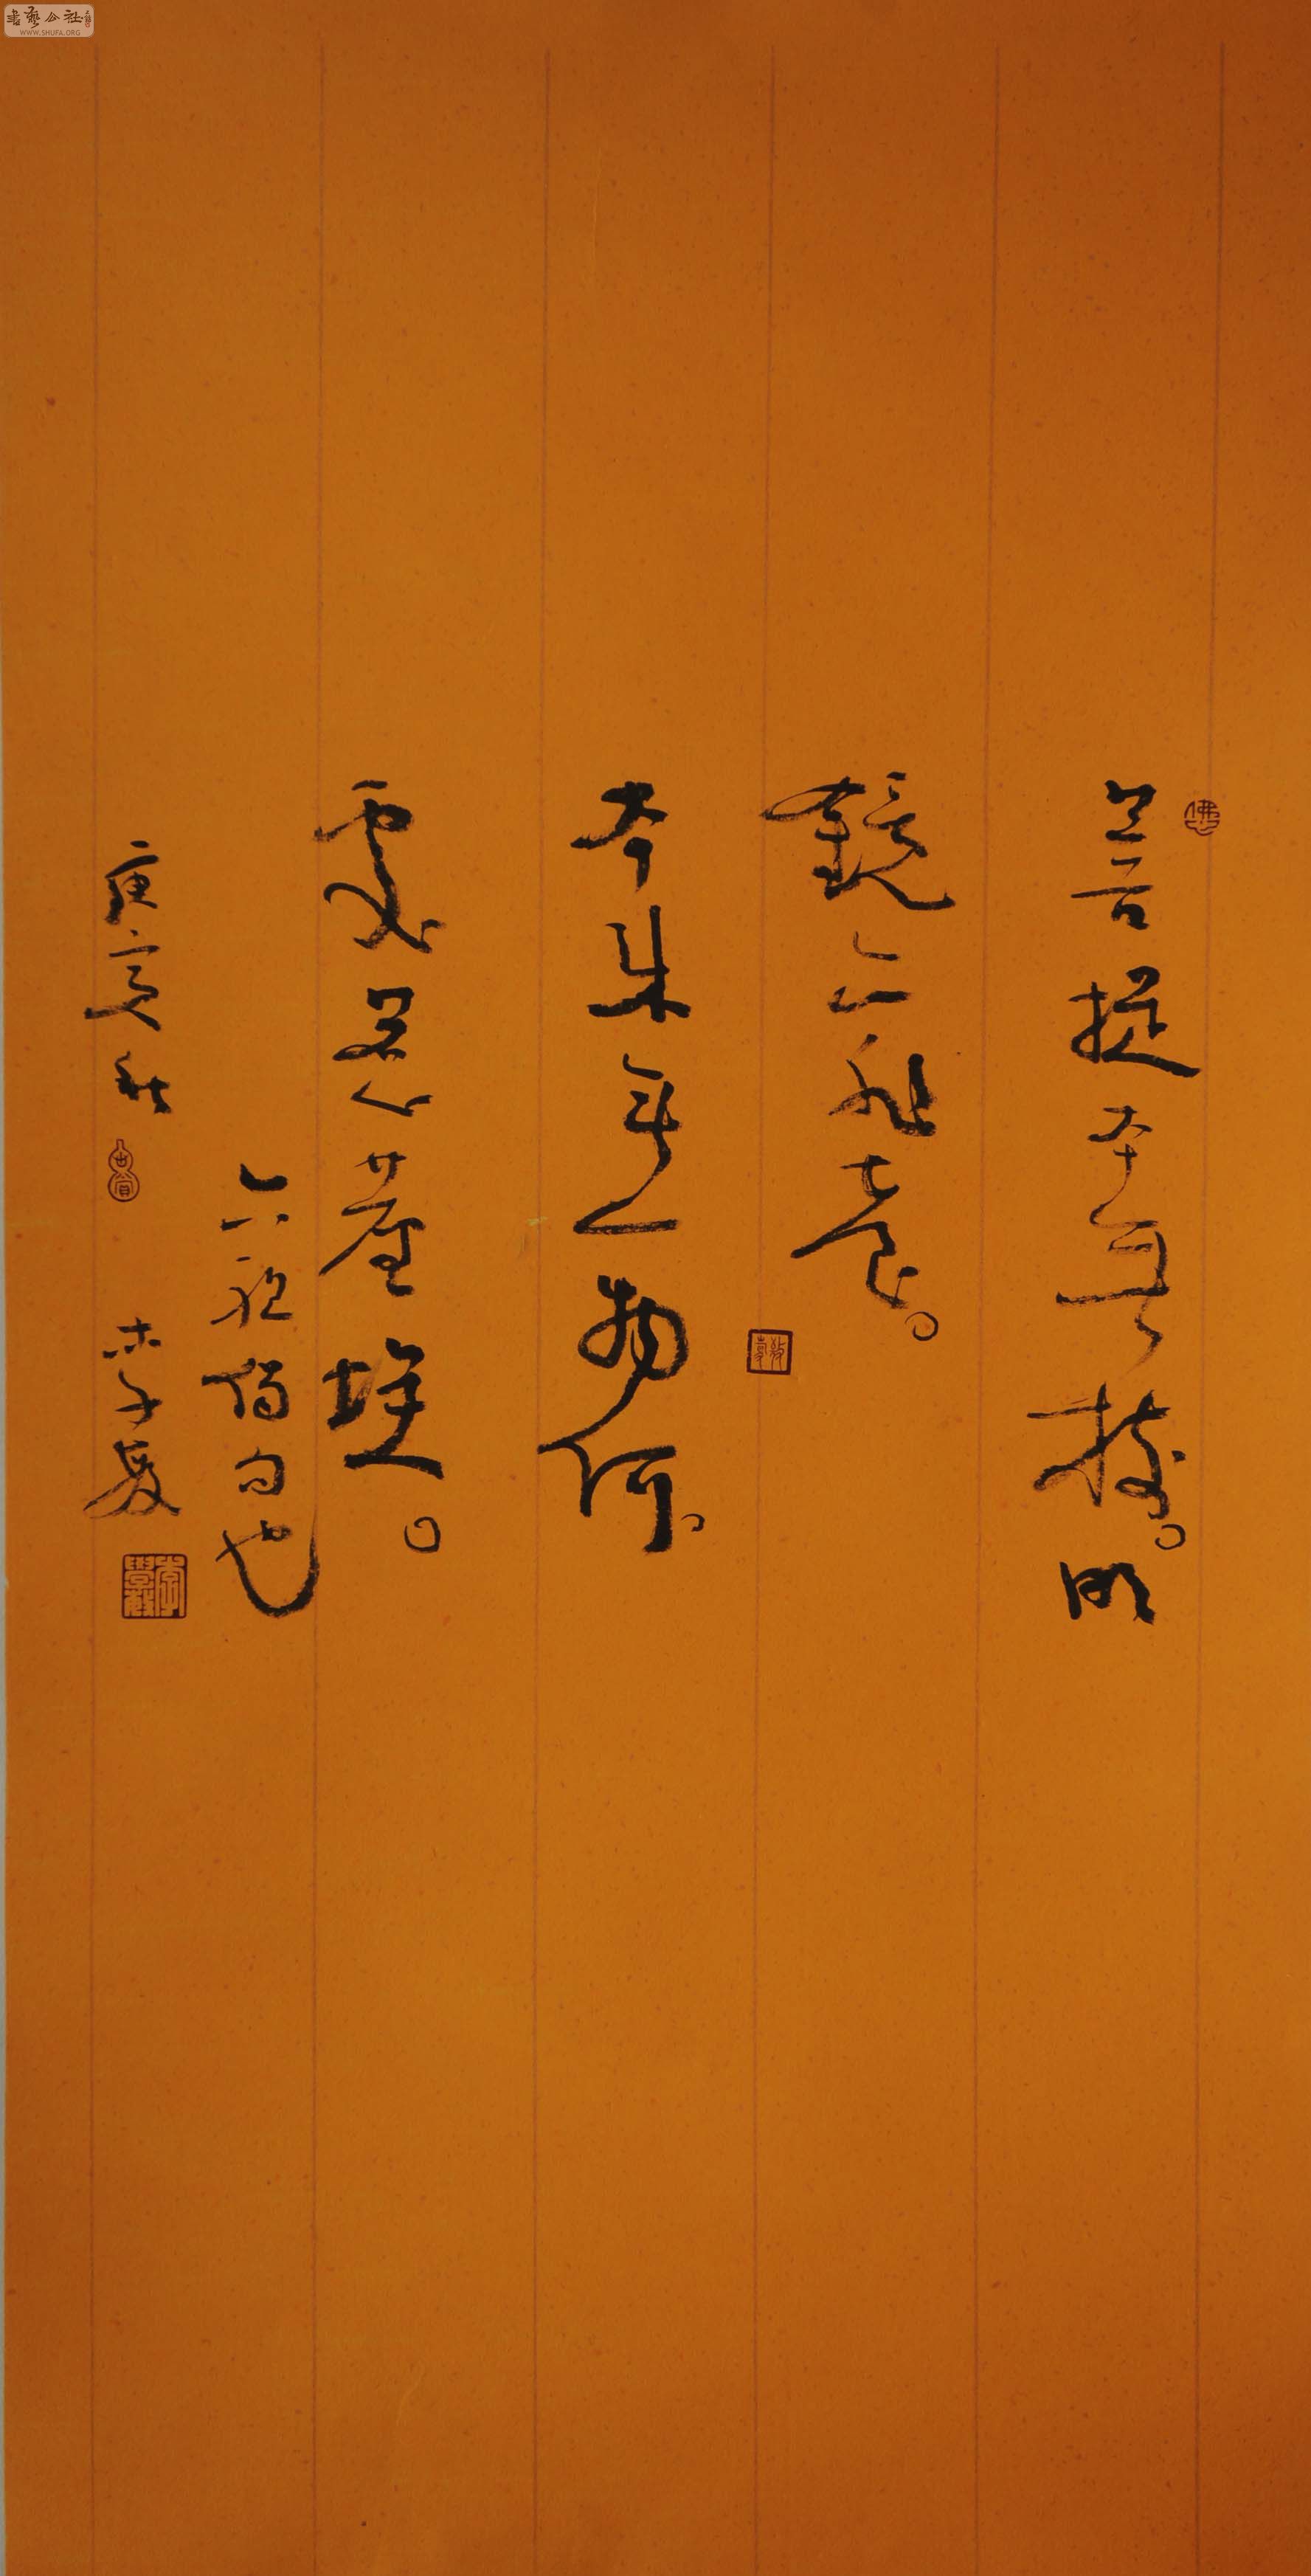 菩提本無树。明
鏡亦非臺。
本来無一物何
處惹塵埃。
六祖偈句也
庚寅秋 李
佛
書藝公社
WWW.SHUFA.ORG